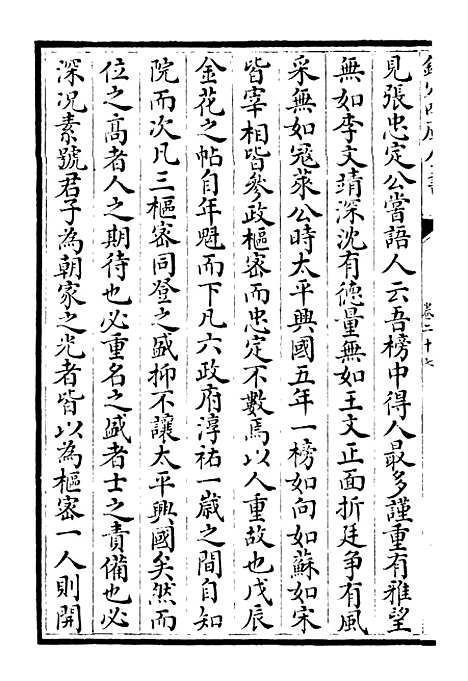 欽定四庫全書
卷二十七
見張忠定公嘗語人云吾榜中得人最多謹重有雅望
無如李文靖深沈有德量無如王文正面折廷爭有風
采無如寇萊公時太平興國五年一榜如向如蘇如宋
皆宰相皆參政樞密而忠定不數焉以人重故也戊辰
金花之帖自年魁而下凡六政府淳祐一歲之間自知
院而次凡三樞密同登之盛抑不讓太平興國矣然而
位之高者人之期待也必重名之盛者士之責備也必
深况素號君子為朝家之光者皆以為樞密一人則開